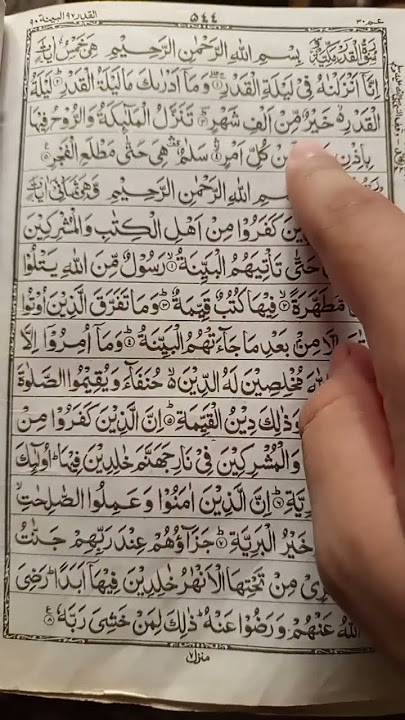 القدر ٩٧ البينة ٩٠ ٥٤٤ عم ٣٠
سورة القدر مكية بِسْمِ اللهِ الرَّحْمٰنِ الرَّحِيْمِ هِيَ خَمْسُ اٰيَاتٍ
اِنَّاۤ اَنْزَلْنٰهُ فِيْ لَيْلَةِ الْقَدْرِ ۚۖ وَمَاۤ اَدْرٰىكَ مَا لَيْلَةُ الْقَدْرِ ؕ لَيْلَةُ
الْقَدْرِ ۙ خَيْرٌ مِّنْ اَلْفِ شَهْرٍ ؕ تَنَزَّلُ الْمَلٰٓئِكَةُ وَالرُّوْحُ فِيْهَا
بِاِذْنِ كُلِّ اَمْرٍ سَلٰمٌ هِيَ حَتّٰى مَطْلَعِ الْفَجْرِ
اللهِ الرَّحْمٰنِ الرَّحِيْمِ وَهِيَ ثَمَانِيْ اٰيَاتٍ
كَفَرُوْا مِنْ اَهْلِ الْكِتٰبِ وَالْمُشْرِكِيْنَ
حَتّٰى تَاْتِيَهُمُ الْبَيِّنَةُ ۙ رَسُوْلٌ مِّنَ اللهِ يَتْلُوْا
مُّطَهَّرَةً ۙ فِيْهَا كُتُبٌ قَيِّمَةٌ ؕ وَمَا تَفَرَّقَ الَّذِيْنَ اُوْتُوا
اِلَّا مِنْۢ بَعْدِ مَا جَآءَتْهُمُ الْبَيِّنَةُ ؕ وَمَاۤ اُمِرُوْۤا اِلَّا
مُخْلِصِيْنَ لَهُ الدِّيْنَ ۙ حُنَفَآءَ وَيُقِيْمُوا الصَّلٰوةَ
وَذٰلِكَ دِيْنُ الْقَيِّمَةِ ؕ اِنَّ الَّذِيْنَ كَفَرُوْا مِنْ
وَالْمُشْرِكِيْنَ فِيْ نَارِ جَهَنَّمَ خٰلِدِيْنَ فِيْهَا ؕ اُولٰٓئِكَ
اِنَّ الَّذِيْنَ اٰمَنُوْا وَعَمِلُوا الصّٰلِحٰتِ ۙ
خَيْرُ الْبَرِيَّةِ ؕ جَزَآؤُهُمْ عِنْدَ رَبِّهِمْ جَنّٰتُ
مِنْ تَحْتِهَا الْاَنْهٰرُ خٰلِدِيْنَ فِيْهَاۤ اَبَدًا ؕ رَضِيَ
اللهُ عَنْهُمْ وَرَضُوْا عَنْهُ ؕ ذٰلِكَ لِمَنْ خَشِيَ رَبَّهٗ
منزل ٧